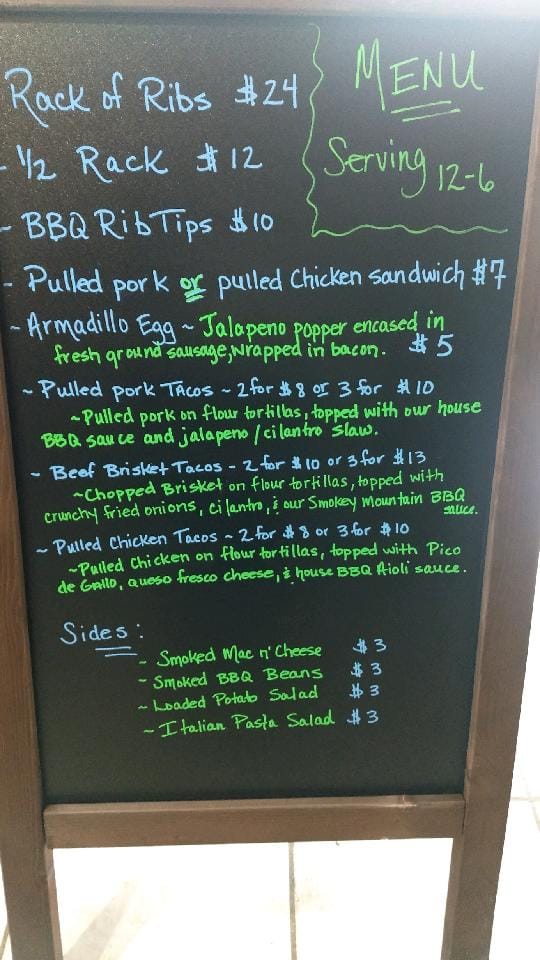 MENU
Serving 12-6
Rack of Ribs $24
- 1/2 Rack $12
- BBQ Rib Tips $10
- Pulled pork or pulled Chicken sandwich $7
- Armadillo Egg ~ Jalapeno popper encased in
fresh ground sausage, wrapped in bacon. $5
~ Pulled pork Tacos ~ 2 for $8 or 3 for $10
~Pulled pork on flour tortillas, topped with our house
BBQ sauce and jalapeno/cilantro slaw.
~ Beef Brisket Tacos - 2 for $10 or 3 for $13
~Chopped Brisket on flour tortillas, topped with
crunchy fried onions, cilantro, & our Smokey Mountain BBQ
sauce.
~ Pulled Chicken Tacos ~ 2 for $8 or 3 for $10
~Pulled Chicken on flour tortillas, topped with Pico
de Gallo, queso fresco cheese, & house BBQ Aioli sauce.
Sides:
~ Smoked Mac n' Cheese $3
~ Smoked BBQ Beans $3
~ Loaded Potato Salad $3
~ Italian Pasta Salad $3